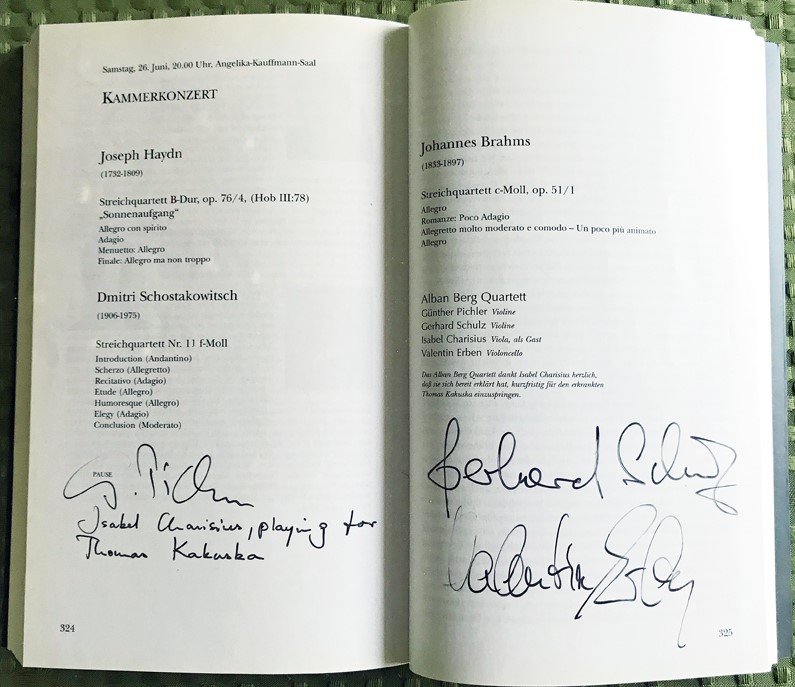 Samstag, 26. Juni, 20.00 Uhr, Angelika-Kauffmann-Saal
KAMMERKONZERT
Joseph Haydn
(1732-1809)
Streichquartett B-Dur, op. 76/4, (Hob III:78)
„Sonnenaufgang“
Allegro con spirito
Adagio
Menuetto: Allegro
Finale: Allegro ma non troppo
Dmitri Schostakowitsch
(1906-1975)
Streichquartett Nr. 11 f-Moll
Introduction (Andantino)
Scherzo (Allegretto)
Recitativo (Adagio)
Etude (Allegro)
Humoresque (Allegro)
Elegy (Adagio)
Conclusion (Moderato)
PAUSE
G. Pichler
Isabel Charisius, playing for
Thomas Kakuska
324
Johannes Brahms
(1833-1897)
Streichquartett c-Moll, op. 51/1
Allegro
Romanze: Poco Adagio
Allegretto molto moderato e comodo – Un poco più animato
Allegro
Alban Berg Quartett
Günther Pichler Violine
Gerhard Schulz Violine
Isabel Charisius Viola, als Gast
Valentin Erben Violoncello
Das Alban Berg Quartett dankt Isabel Charisius herzlich,
daß sie sich bereit erklärt hat, kurzfristig für den erkrankten
Thomas Kakuska einzuspringen.
Gerhard Schulz
Valentin Erben
325